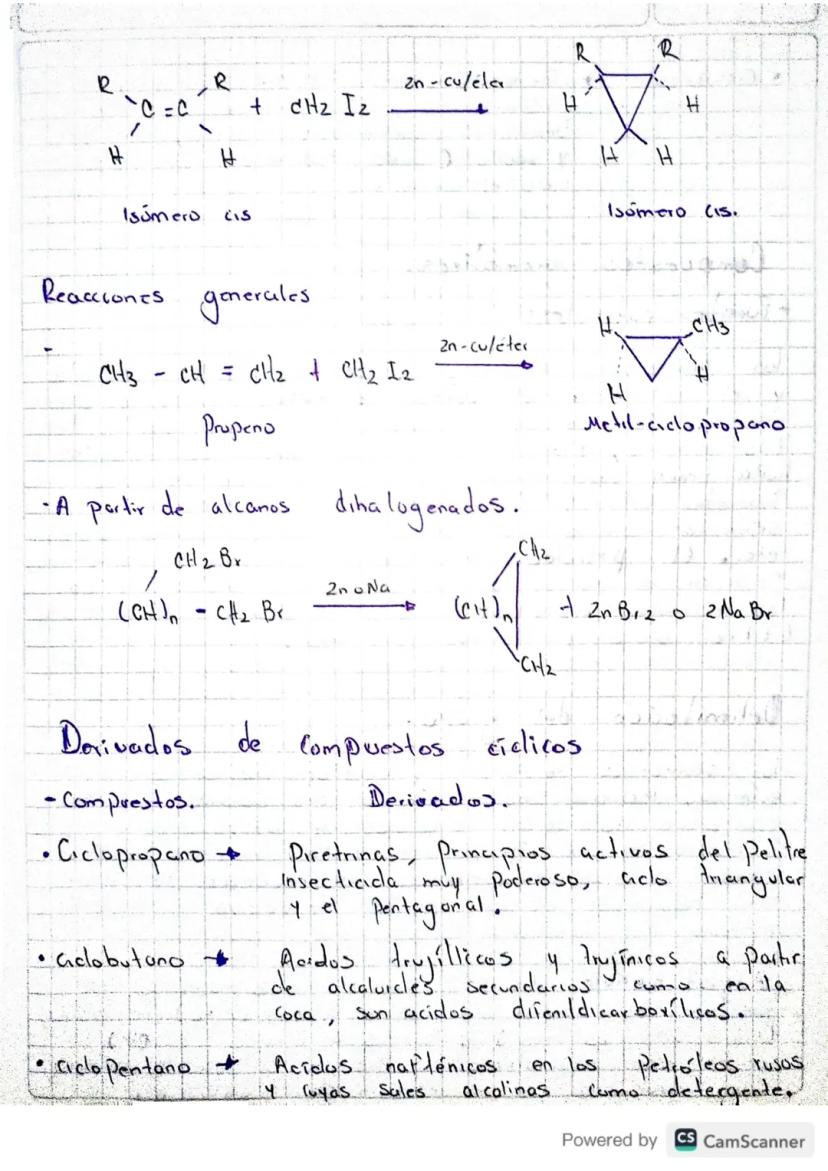 R R Zn-cu/éter R R
C = C + CH2 I2 H H
H H H H
Isómero cis Isómero cis.
Reacciones generales
- CH3 - CH = CH2 + CH2 I2 Zn-cu/éter H CH3
H H
Propeno Metil-ciclopropano
- A partir de alcanos dihalogenados.
CH2 Br CH2
(CH)n - CH2 Br Zn o Na (CH)n + Zn Br2 o 2NaBr
CH2
Derivados de compuestos cíclicos
- Compuestos. Derivados.
• Ciclopropano → Piretrinas, principios activos del Pelitre
insecticida muy Poderoso, ciclo triangular
y el Pentagonal.
• ciclobutano → Acidos truxíllicos y truxínicos a partir
de alcaloides secundarios como en la
coca, son acidos difenildicarboxílicos.
• ciclopentano → Acidos nafténicos en los Petróleos rusos
y cuyas sales alcalinas como detergente.
Powered by CS CamScanner